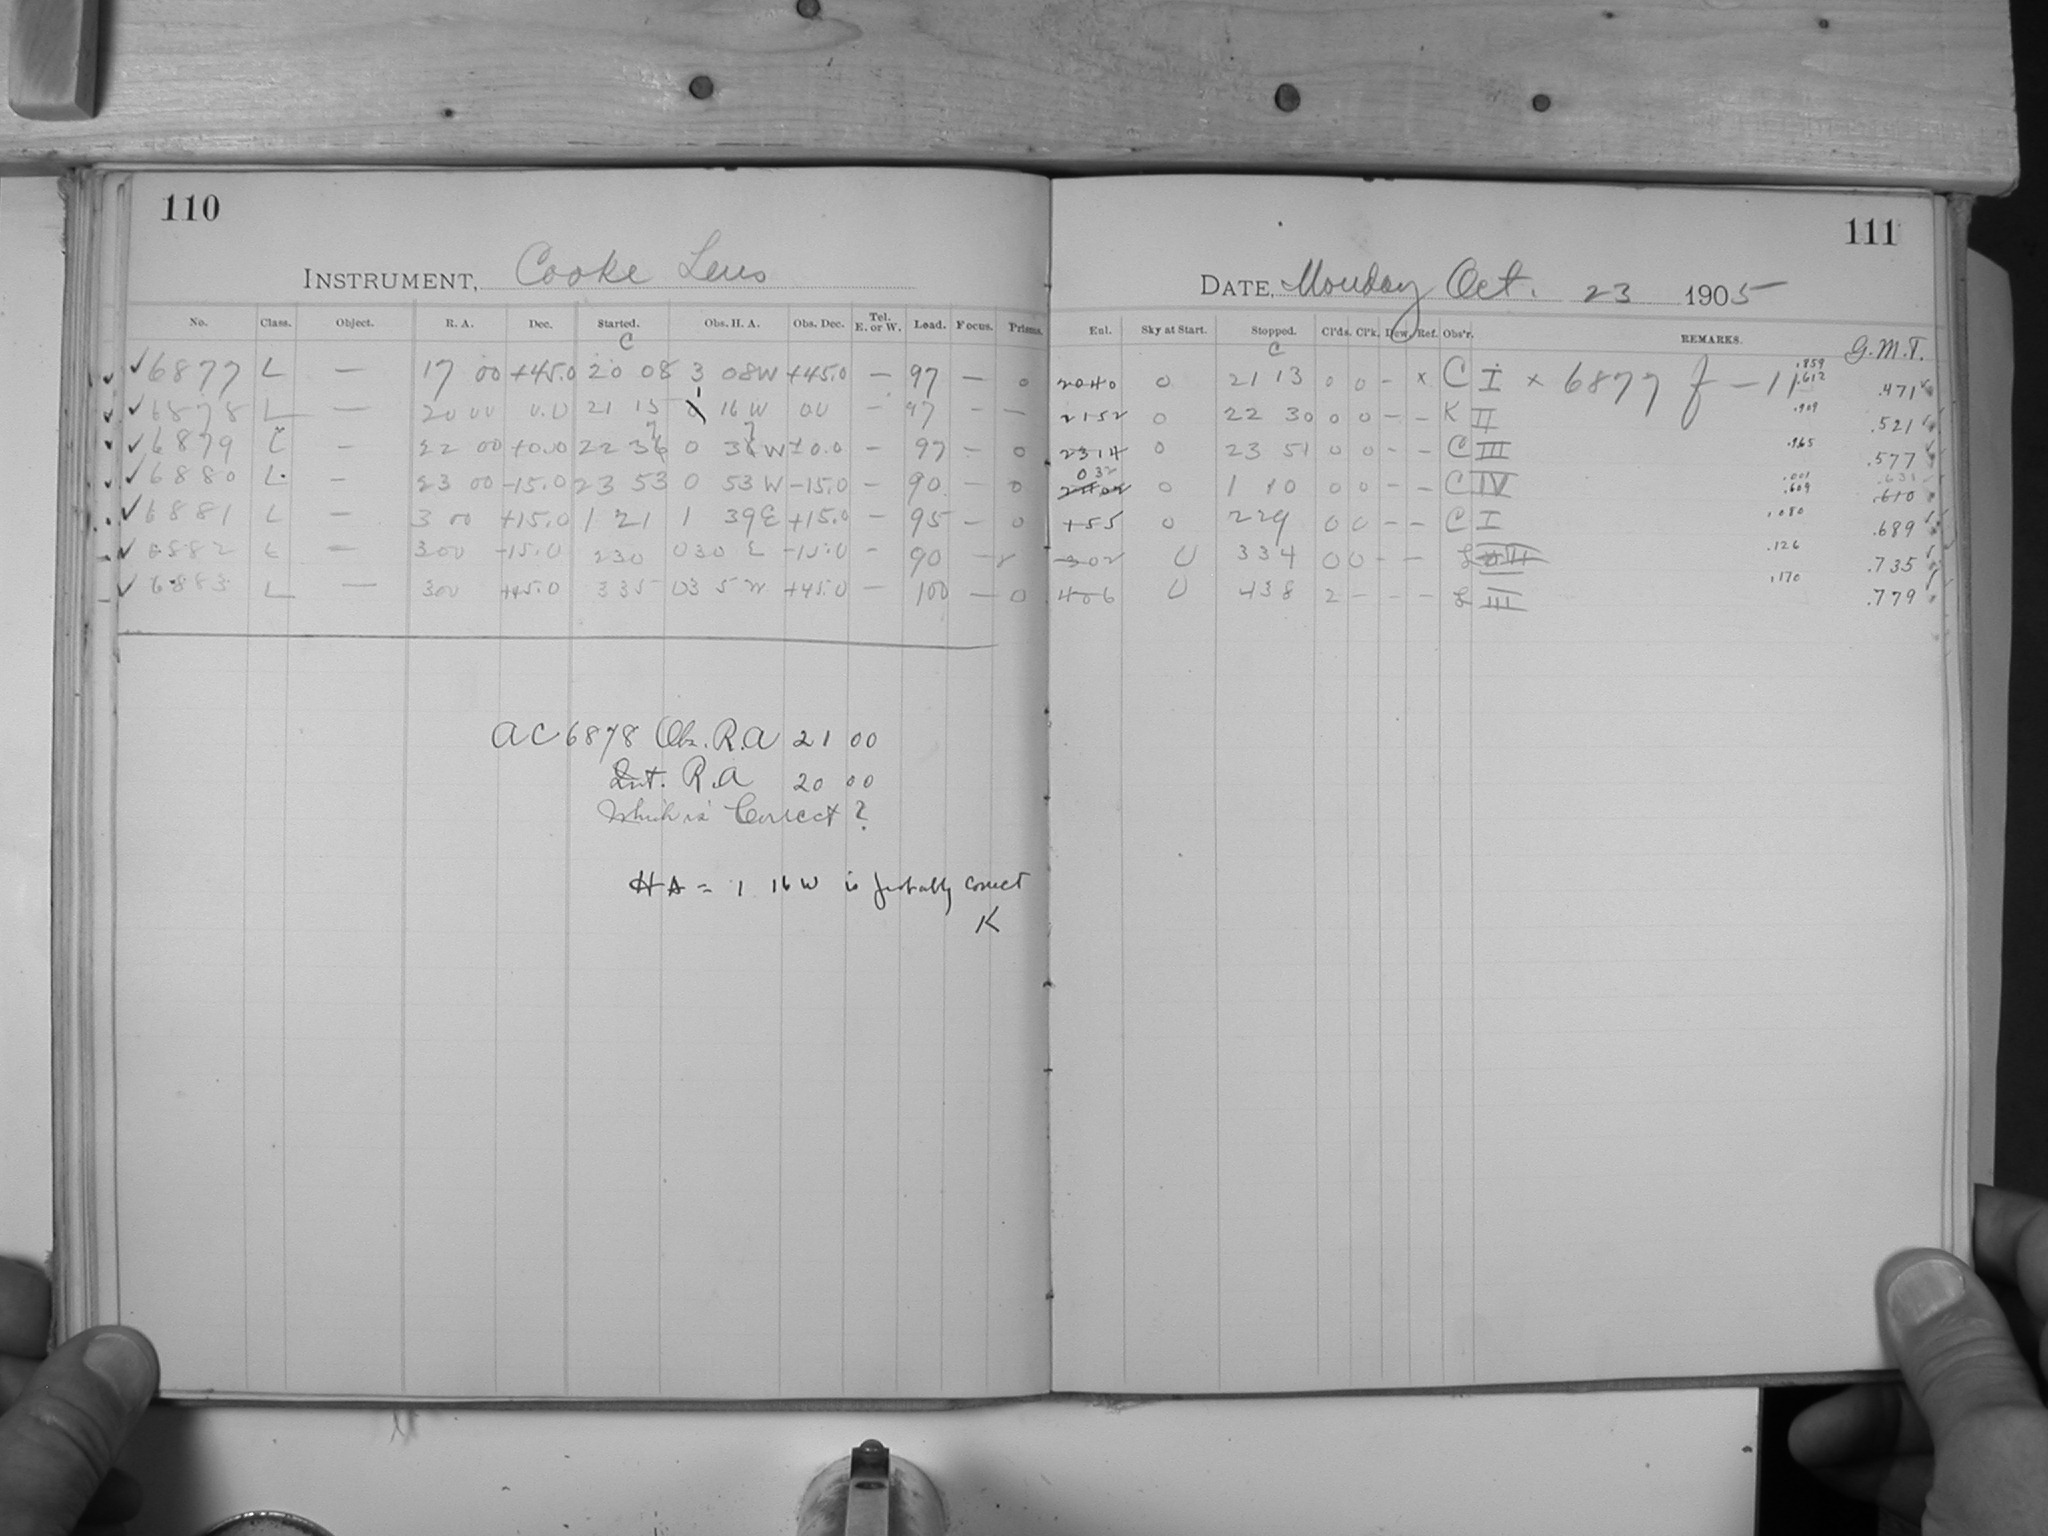 110
INSTRUMENT, Cooke Lens
No. Class. Object. R. A. Dec. Started. Obs. H. A. Obs. Dec. Tel. E. or W. Load. Focus. Prisms.
C
✓ 6877 L — 17 00 +45.0 20 08 3 08W +45.0 — 97 — 0
✓ 6878 L — 20 00 0.0 21 15 1 16 W 00 — 97 — —
✓ 6879 L — 22 00 +0.0 22 37 0 37 W ±0.0 — 97 — 0
✓ 6880 L — 23 00 -15.0 23 53 0 53 W -15.0 — 90 — 0
✓ 6881 L — 3 00 +15.0 1 21 1 39E +15.0 — 95 — 0
✓ 6882 L — 300 -15.0 230 030 E -15.0 — 90 —
✓ 6883 L — 300 +45.0 335 03 5 W +45.0 — 100 — 0
AC 6878 Obs. R.A 21 00
Int. R.A 20 00
Which is Correct?
HA = 1 16 W is probably correct
K
111
DATE, Monday Oct. 23 1905
Enl. Sky at Start. Stopped. Cl'ds. Cl'k. Dew. Ref. Obs'r. REMARKS. G.M.T.
C
2040 0 21 13 0 0 - x C I x 6877 f - 11 .859 .612 .471
2152 0 22 30 0 0 - - K II .909 .521
2314 0 23 51 0 0 - - C III .965 .577
032 0 1 10 0 0 - - C IV .001 .609 .610
155 0 229 0 0 - - C I .080 .689
302 0 334 0 0 - - L II .126 .735
406 0 438 2 - - - L III .170 .779